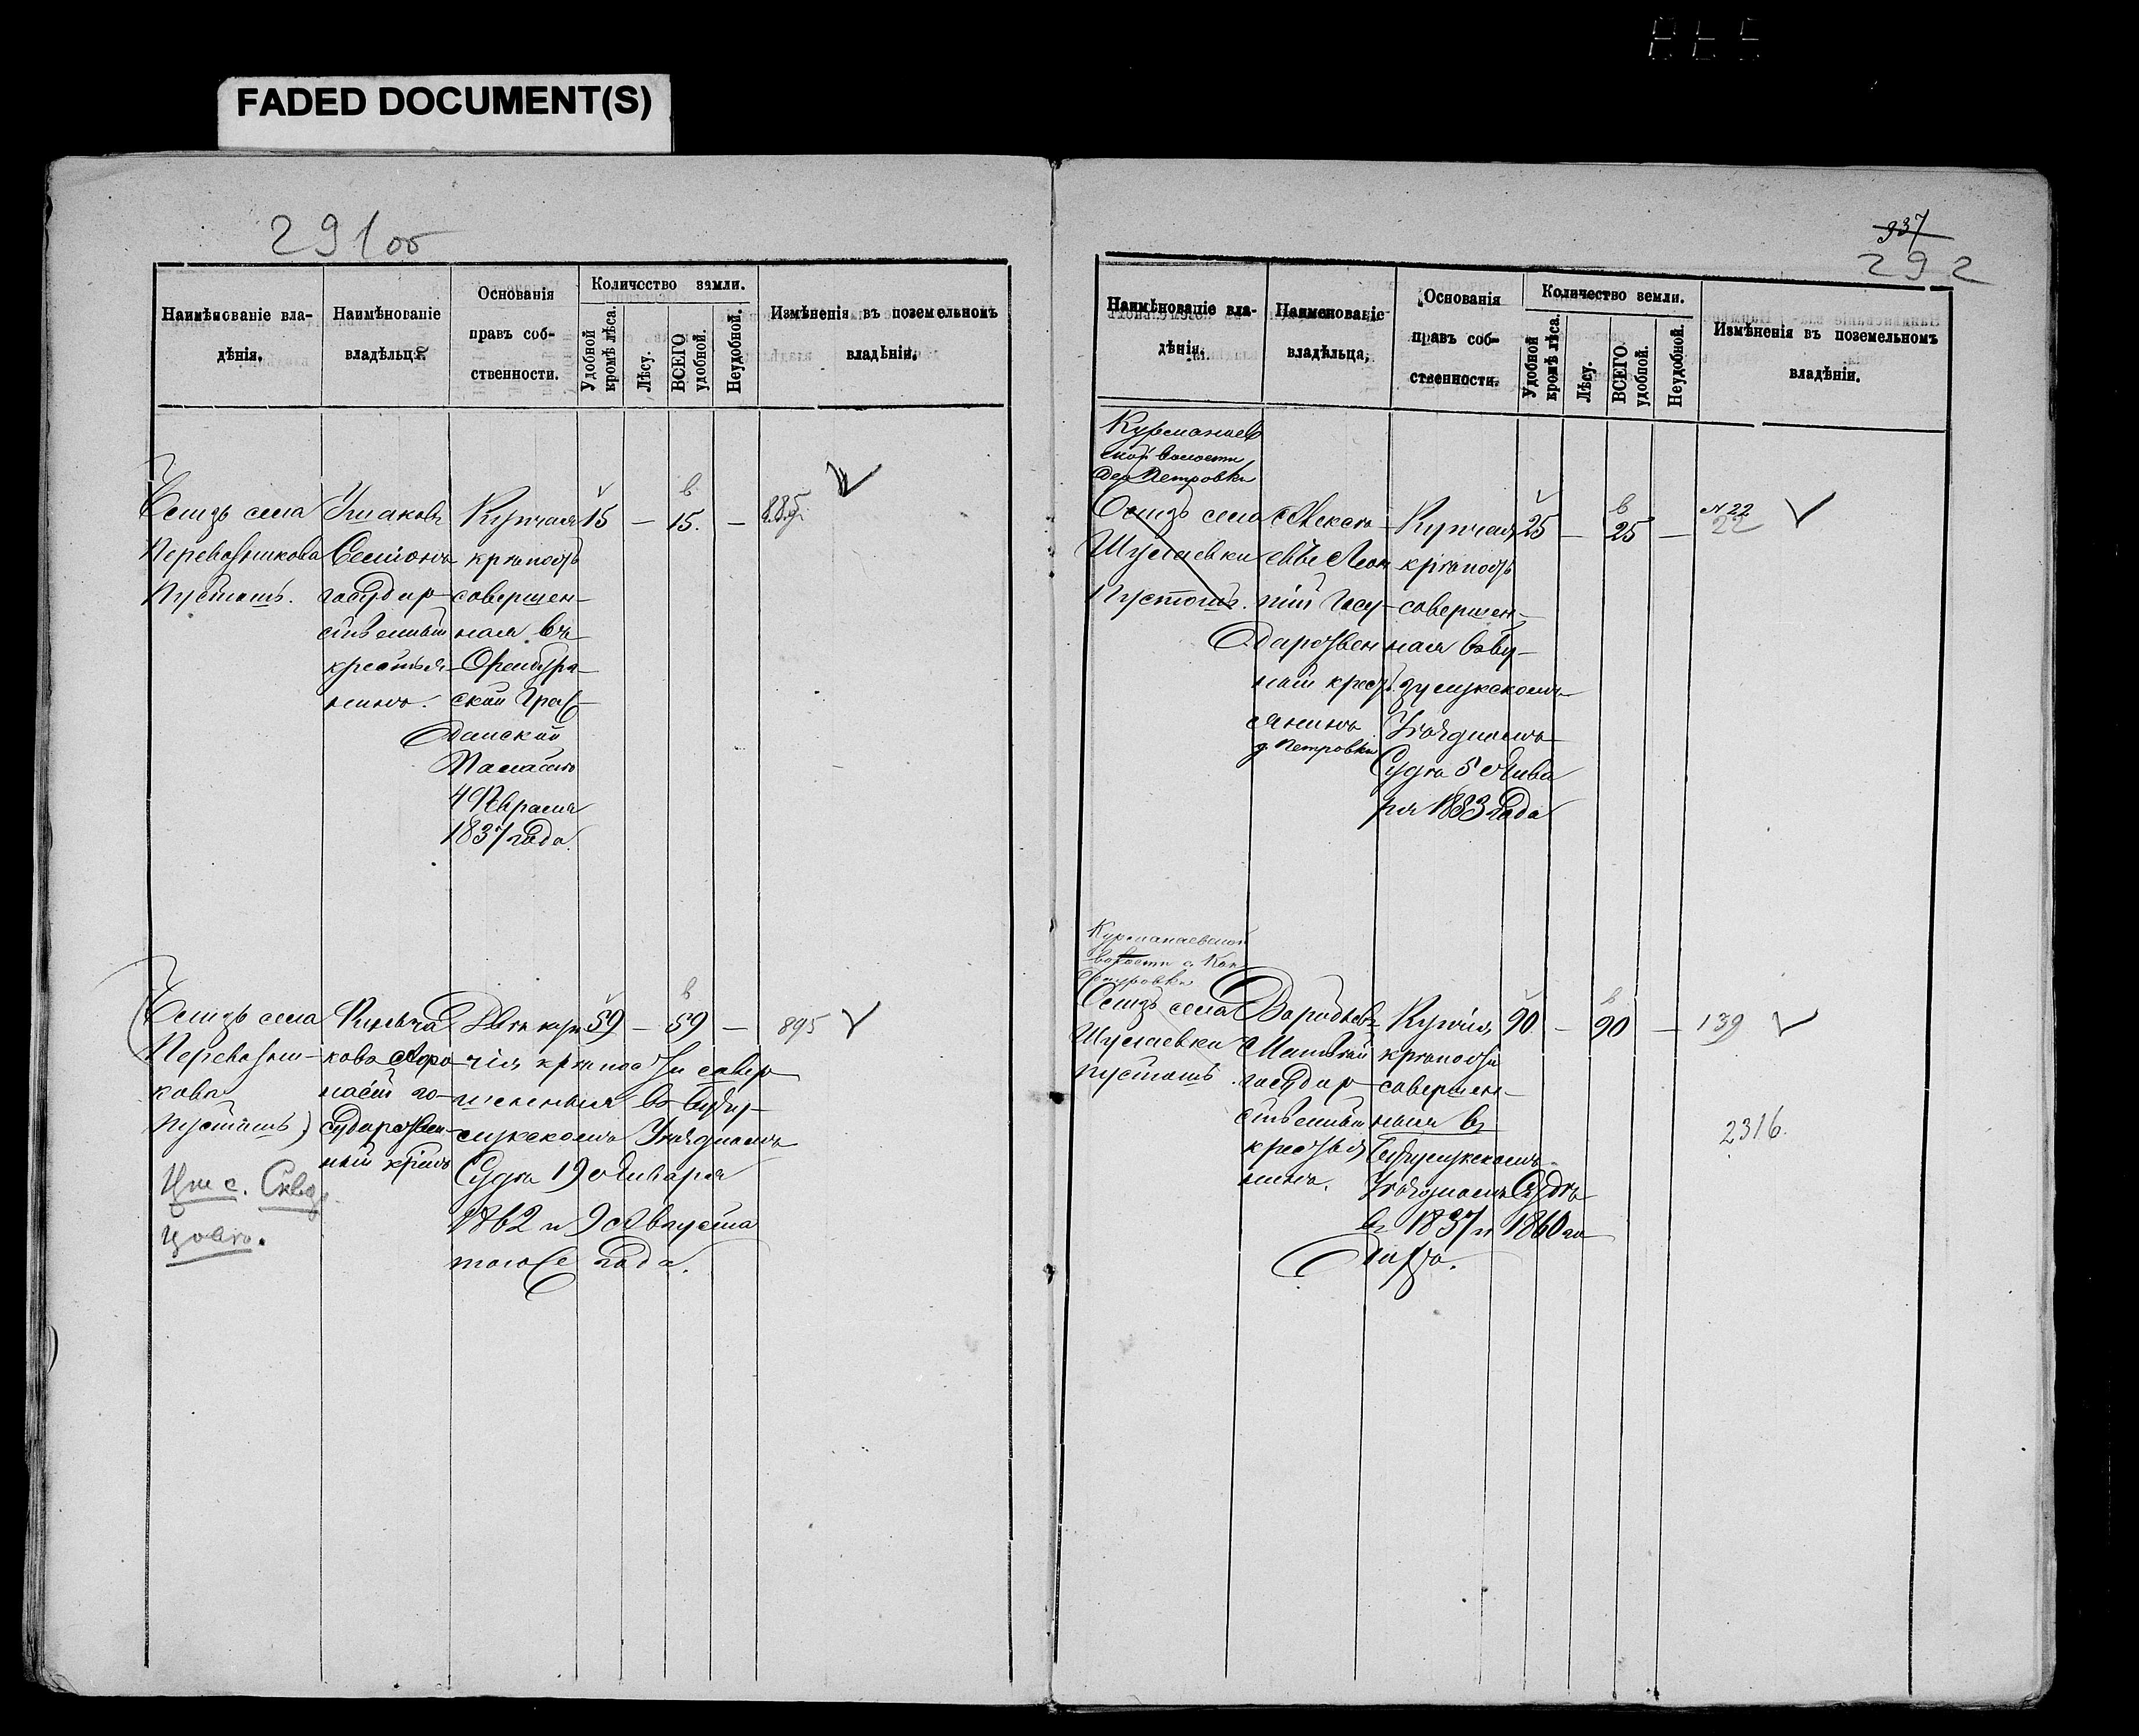 FADED DOCUMENT(S)
291 об
Наимѣнованіе вла-
дѣнія.
Наимѣнованіе
владѣльца.
Основанія
правъ соб-
ственности.
Количество земли.
Удобной
кромѣ лѣса.
Лѣсу.
ВСЕГО
удобной.
Неудобной.
Измѣненія въ поземельномъ
владѣніи.
Близь села
Перевозникова
Пустошь.
Ушаковъ
Семіонъ
государ-
ственный
крестья-
нинъ.
Купчая
крѣпость
совершен-
ная въ
Оренбург-
ской Граж-
данской
Палатѣ
1837 года.
15
—
в
15.
—
885
Близь села
Перевозни-
кова
пустошь)
Цт с. Сквор-
цово.
государствен-
ный
Двѣ куп-
чія крѣпости совер
шенныя въ Бузу-
лукскомъ Уѣздномъ
Суда 19 Января
1862 и 9 Августа
того же года.
59
—
в
59
—
895
937
292
Наимѣнованіе вла-
дѣнія.
Наименованіе
владѣльца,
Основанія
правъ соб-
ственности.
Количество земли.
Удобной
кромѣ лѣса.
Лѣсу.
ВСЕГО
удобной.
Неудобной.
Измѣненія въ поземельномъ
владѣніи.
Курманаев
ской волости
дер Петровки
Близь села
Пустошь.
Алексѣ-
евъ Леон
тій Госу-
дарствен
ный крест
янинъ
д. Петровки
Купчая
крѣпость
совершен-
ная въ Бу-
зулукскомъ
Уѣздномъ
Суда 5 Янва
ря 1833 года
25
—
в
25
—
N 22
22
Курманаевской
волости с. Кан
Близь села
пустошь.
государ-
ственный
крестья
нинъ.
крѣпости
совершен-
ныя въ
Бузулукскомъ
Уѣздномъ Судѣ
въ 1837 и 1860 го
дахъ.
90
—
в
90
—
139
2316.